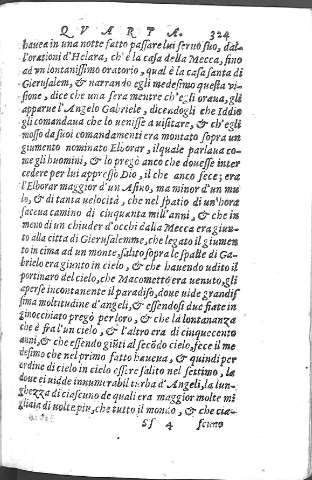 QVARTA. 324
hauea in una notte fatto passare lui seruo suo, dal-
l'orationi d'Helara, ch'è la casa della Mecca, fino
ad un lontanissimo oratorio, qual è la casa santa di
Gierusalem, & narrando egli medesimo questa vi-
sione, dice che una sera mentre ch'egli oraua, gli
apparue l'Angelo Gabriele, dicendogli che Iddio
gli comandaua che lo uenisse a uisitare, & ch'egli
mosso da suoi comandamenti era montato sopra un
giumento nominato Elborar, ilquale parlaua co-
me gli huomini, & lo pregò anco che douesse inter
cedere per lui appresso Dio, il che anco fece; era
l'Elborar maggior d'un Asino, ma minor d'un mu
lo, & di tanta uelocità, che nel spatio di un'hora
faceua camino di cinquanta mill'anni, & che in
meno di un chiuder d'occhi dalla Mecca era giun-
to alla città di Gierusalemme, che legato il giumen
to in cima ad un monte, salito sopra le spalle di Ga-
brielo era giunto in cielo, & che hauendo udito il
portinaro del cielo, che Macometto era uenuto, gli
aperse incontanente il paradiso, doue uide grandis
sima moltitudine d'angeli, & essendosi due fiate in
ginocchiato pregò per loro, & che la lontananza
che è fra l'un cielo, & l'altro era di cinquecento
anni, & che essendo giūti al secōdo cielo, fece il me
desimo che nel primo fatto haueua, & quindi per
ordine di cielo in cielo essere salito nel settimo, là
doue ei uidde innumerabil turba d'Angeli, la lun-
ghezza di ciascuno de quali era maggior molte mi
gliaia di uolte piu, che tutto il mondo, & che cia-
Ss 4 scuno